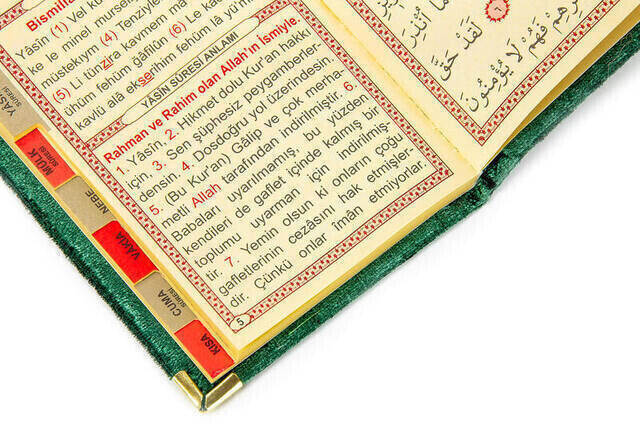 Bismillâ
Yâsîn (1) Vel ku
ke le minel mursel
müstekıym (4) Tenziylel
(5) Li tünzira kavmem mâ
ühüm fehüm ğâfilûn (6) Le ka
kavlü alâ ekserihim fehüm lâ yü'mi
YÂSÎN SÛRESİ ANLAMI
Rahman ve Rahim olan Allah'ın İsmiyle.
1. Yâsîn, 2. Hikmet dolu Kur'an hakkı
için, 3. Sen şüphesiz peygamberler-
densin. 4. Dosdoğru yol üzerindesin.
5. (Bu Kur'an) Gâlip ve çok merha-
metli Allah tarafından indirilmiştir. 6.
Babaları uyarılmamış, bu yüzden
kendileri de gaflet içinde kalmış bir
toplumu uyarman için indirilmiş-
tir. 7. Yemin olsun ki onların çoğu
gafletlerinin cezâsını hak etmişler-
dir. Çünkü onlar îmân etmiyorlar.
5
YÂSİN
SÛRESİ
MÜLK
SÛRESİ
NEBE
VÂKIA
CUMA
SÛRESİ
KISA
لَقَدْ حَقَّ
فَهُمْ لَا يُؤْمِنُونَ